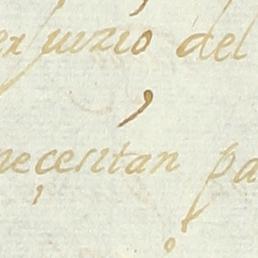 perjuizio del
necesitan pa